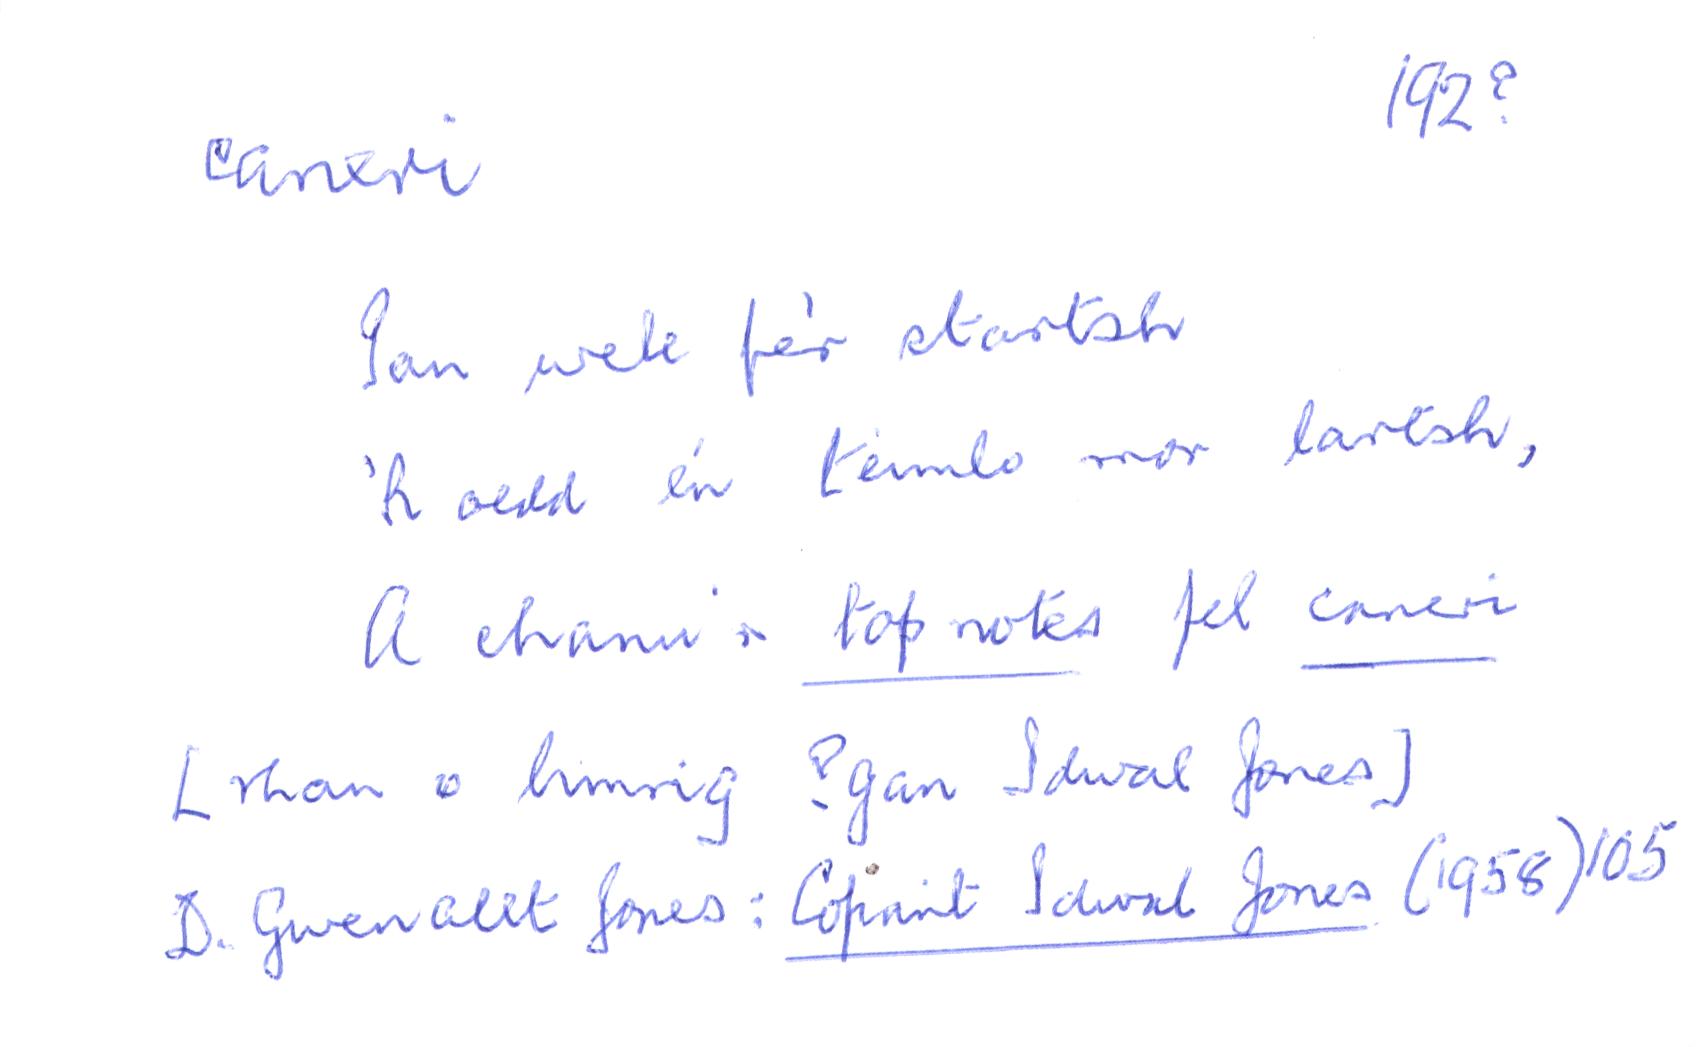 192?
caneri
Pan wele fe'r startsh
'R oedd e'n teimlo mor lartsh,
A chanu'r top notes fel caneri
[rhan o limrig ?gan Idwal Jones]
D. Gwenallt Jones: Cofiant Idwal Jones (1958) 105